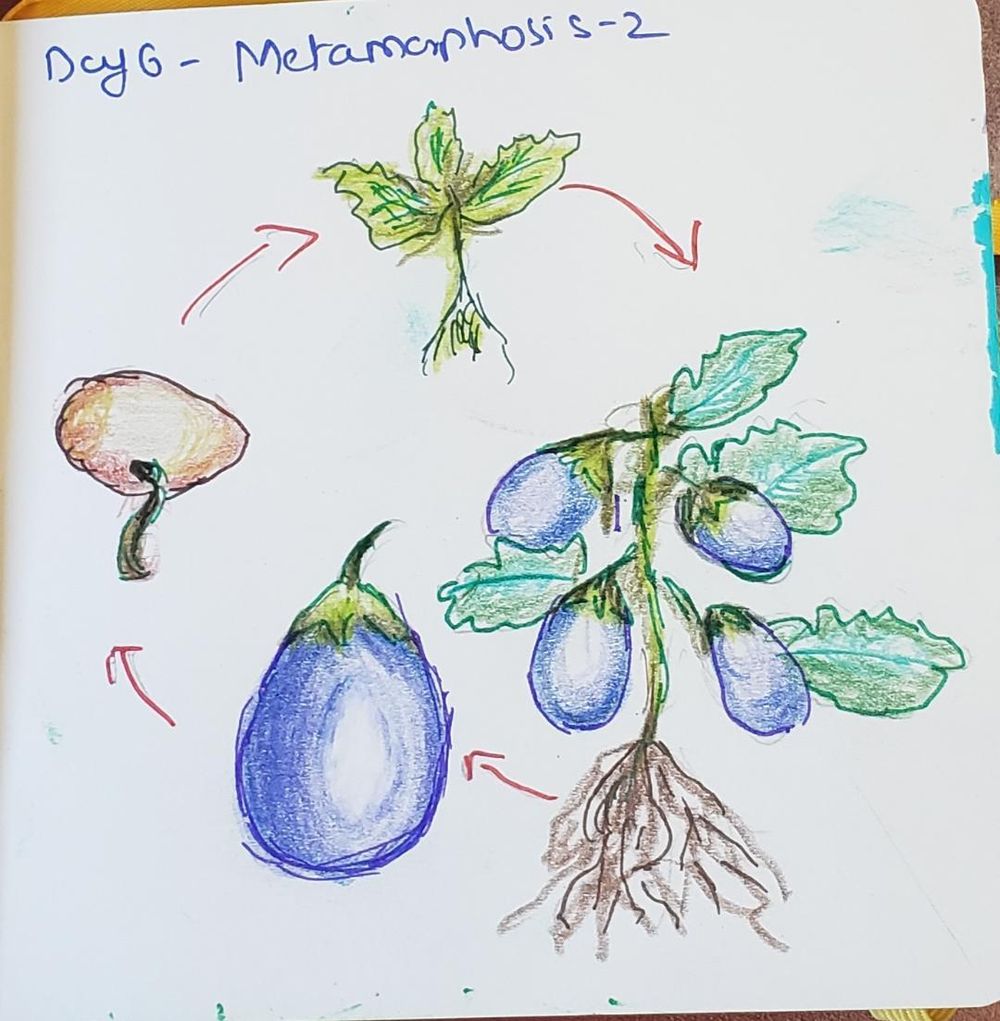 Day 6 - Metamorphosis-2